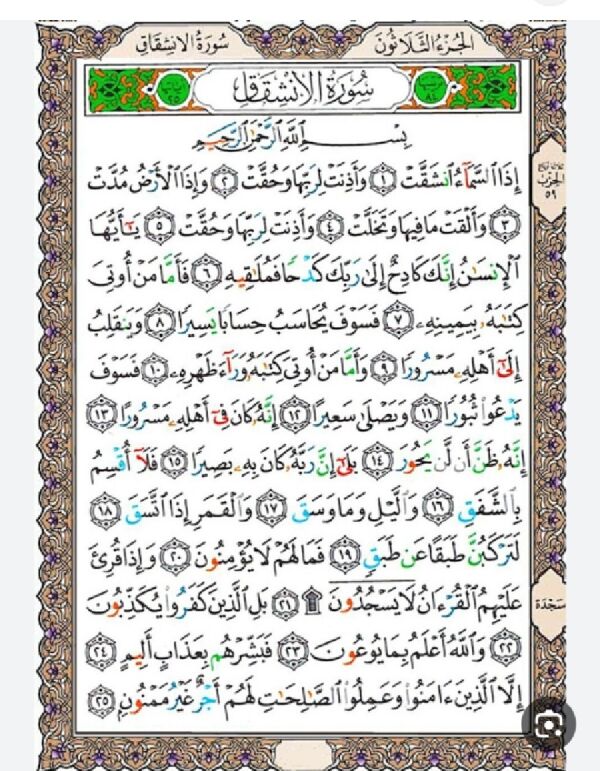 الجُزْءُ الثَّلَاثُونَ
سُورَةُ الانْشِقَاقِ
سُورَةُ الانْشِقَاقِ
بِسْمِ اللَّهِ الرَّحْمَٰنِ الرَّحِيمِ
إِذَا السَّمَآءُ انشَقَّتْ ١ وَأَذِنَتْ لِرَبِّهَا وَحُقَّتْ ٢ وَإِذَا الْأَرْضُ مُدَّتْ
٣ وَأَلْقَتْ مَا فِيهَا وَتَخَلَّتْ ٤ وَأَذِنَتْ لِرَبِّهَا وَحُقَّتْ ٥ يَٰٓأَيُّهَا
الْإِنسَٰنُ إِنَّكَ كَادِحٌ إِلَىٰ رَبِّكَ كَدْحًا فَمُلَٰقِيهِ ٦ فَأَمَّا مَنْ أُوتِيَ
كِتَٰبَهُۥ بِيَمِينِهِۦ ٧ فَسَوْفَ يُحَاسَبُ حِسَابًا يَسِيرًا ٨ وَيَنقَلِبُ
إِلَىٰٓ أَهْلِهِۦ مَسْرُورًا ٩ وَأَمَّا مَنْ أُوتِيَ كِتَٰبَهُۥ وَرَآءَ ظَهْرِهِۦ ١٠ فَسَوْفَ
يَدْعُوا۟ ثُبُورًا ١١ وَيَصْلَىٰ سَعِيرًا ١٢ إِنَّهُۥ كَانَ فِىٓ أَهْلِهِۦ مَسْرُورًا ١٣
إِنَّهُۥ ظَنَّ أَن لَّن يَحُورَ ١٤ بَلَىٰٓ إِنَّ رَبَّهُۥ كَانَ بِهِۦ بَصِيرًا ١٥ فَلَآ أُقْسِمُ
بِالشَّفَقِ ١٦ وَالَّيْلِ وَمَا وَسَقَ ١٧ وَالْقَمَرِ إِذَا اتَّسَقَ ١٨
لَتَرْكَبُنَّ طَبَقًا عَن طَبَقٍ ١٩ فَمَا لَهُمْ لَا يُؤْمِنُونَ ٢٠ وَإِذَا قُرِئَ
عَلَيْهِمُ الْقُرْءَانُ لَا يَسْجُدُونَ ۩ ٢١ بَلِ الَّذِينَ كَفَرُوا۟ يُكَذِّبُونَ
٢٢ وَاللَّهُ أَعْلَمُ بِمَا يُوعُونَ ٢٣ فَبَشِّرْهُم بِعَذَابٍ أَلِيمٍ ٢٤
إِلَّا الَّذِينَ ءَامَنُوا۟ وَعَمِلُوا۟ الصَّٰلِحَٰتِ لَهُمْ أَجْرٌ غَيْرُ مَمْنُونٍۭ ٢٥
الحِزْبِ
٥٩
سَجْدَة